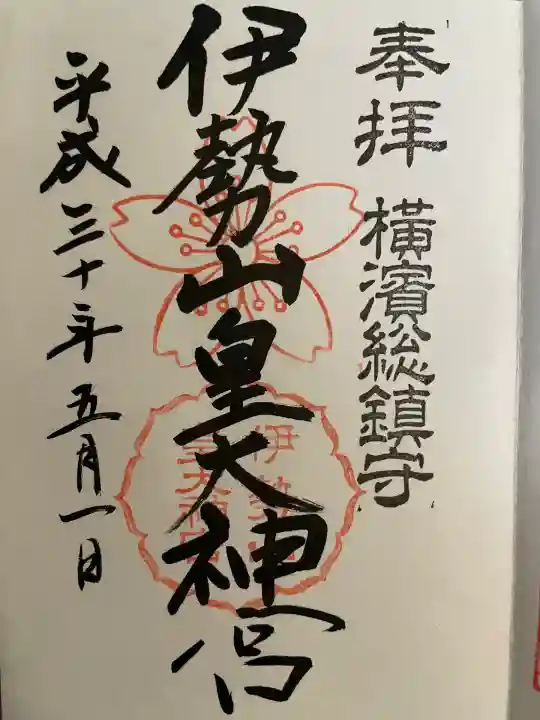 奉拝 横濱総鎮守
伊勢山皇大神宮
平成三十年五月一日
伊勢山
皇大神宮